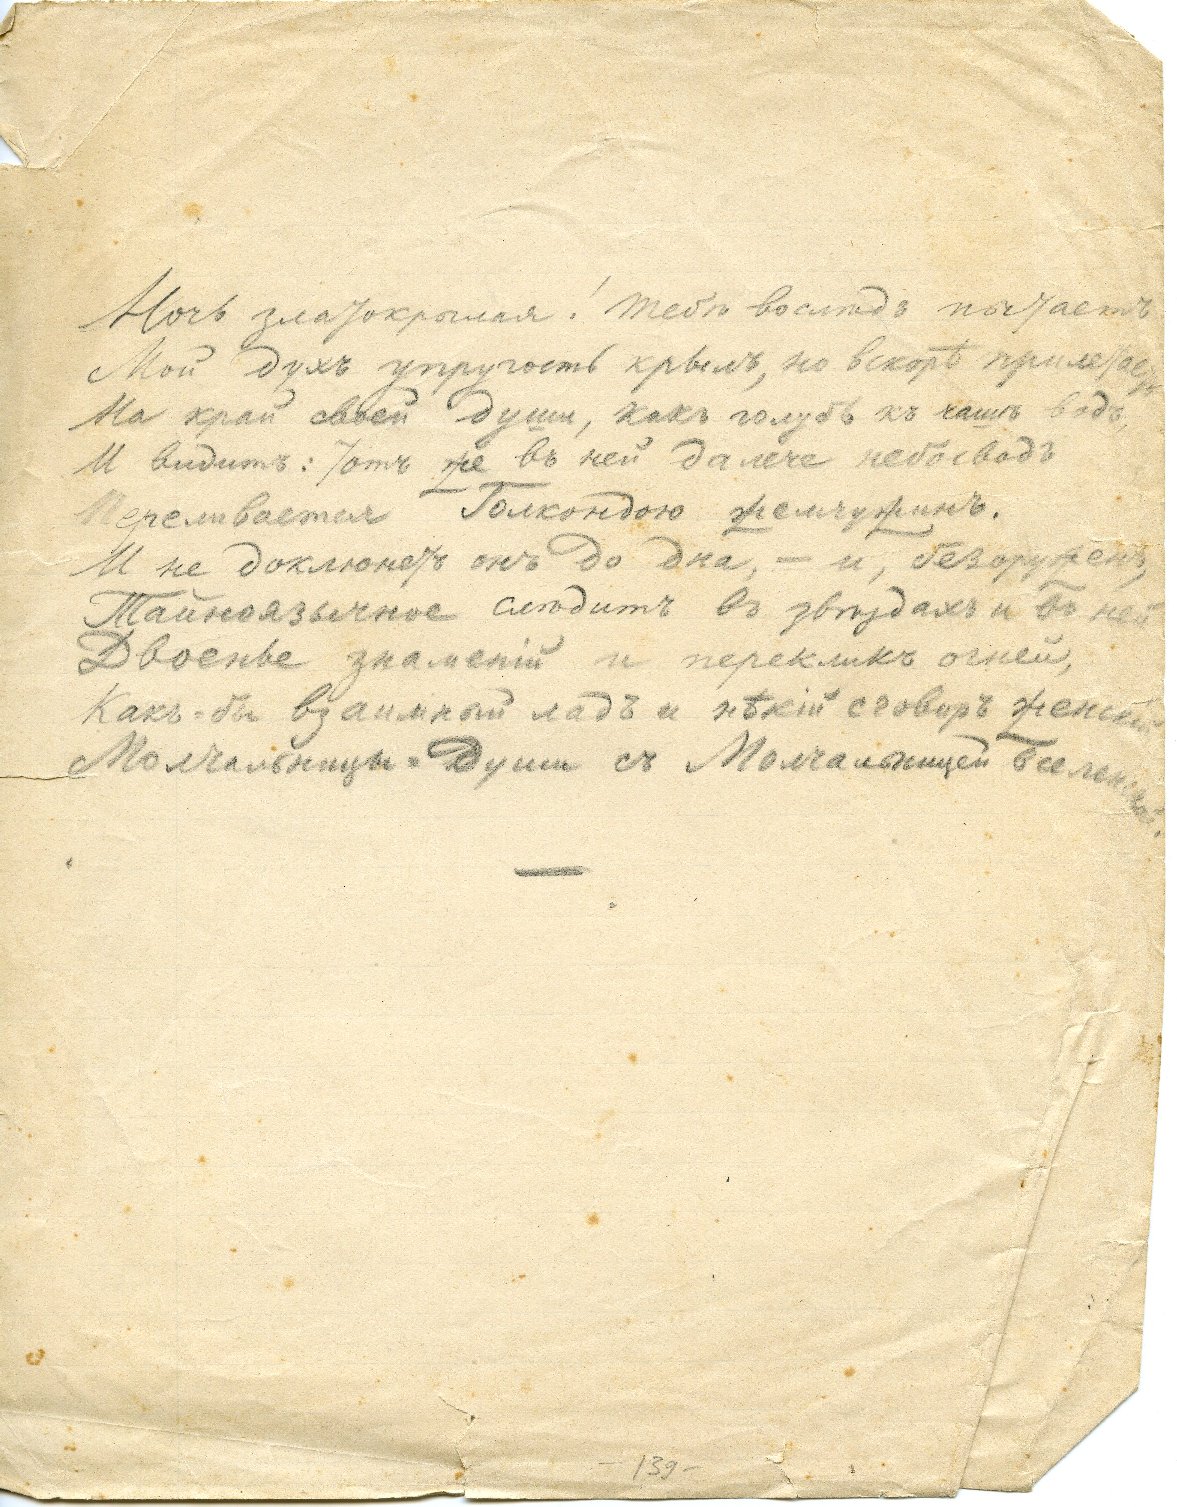 Ночь златокрылая! Тебѣ вослѣдъ пытаетъ
Мой духъ упругость крылъ, но вскорѣ прилетаетъ
На край своей души, какъ голубь къ чашѣ водъ,
И видитъ: тотъ же въ ней далече небосводъ
Переливается Голкондою жемчужинъ.
И не доклюнетъ онъ до дна, — и, безоруженъ,
Тайноязычное слѣдитъ въ звѣздахъ и въ ней
Двоенье знаменій и перекликъ огней,
Какъ-бы взаимный ладъ и нѣкій сговоръ женскій
Молчальницы-Души съ Молчальницей Вселенской.
—
- 139 -